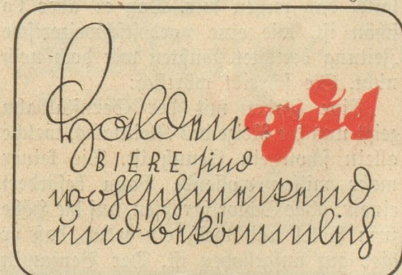 Haldengut
BIERE sind
wohlschmekend
und bekömmlich